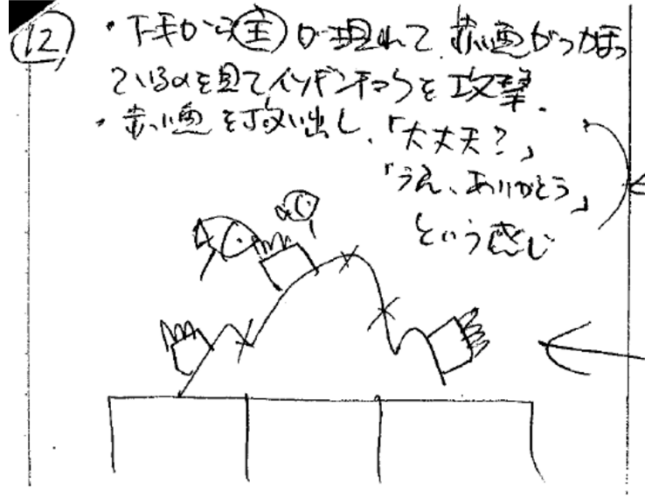 12
・下手から主が現れて、赤い魚がつかまっ
ているのを見てイソギンチャクを攻撃.
・赤い魚を救い出し、「大丈夫?」
「うん、ありがとう」
という感じ